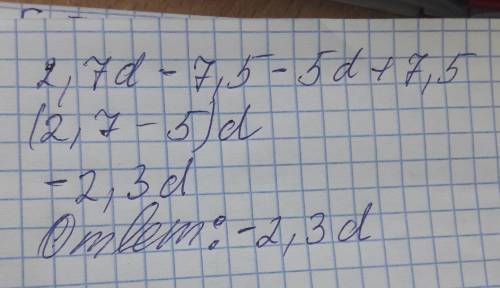 2,7d - 7,5 - 5d + 7,5
(2,7 - 5)d
-2,3d
Ответ: -2,3d